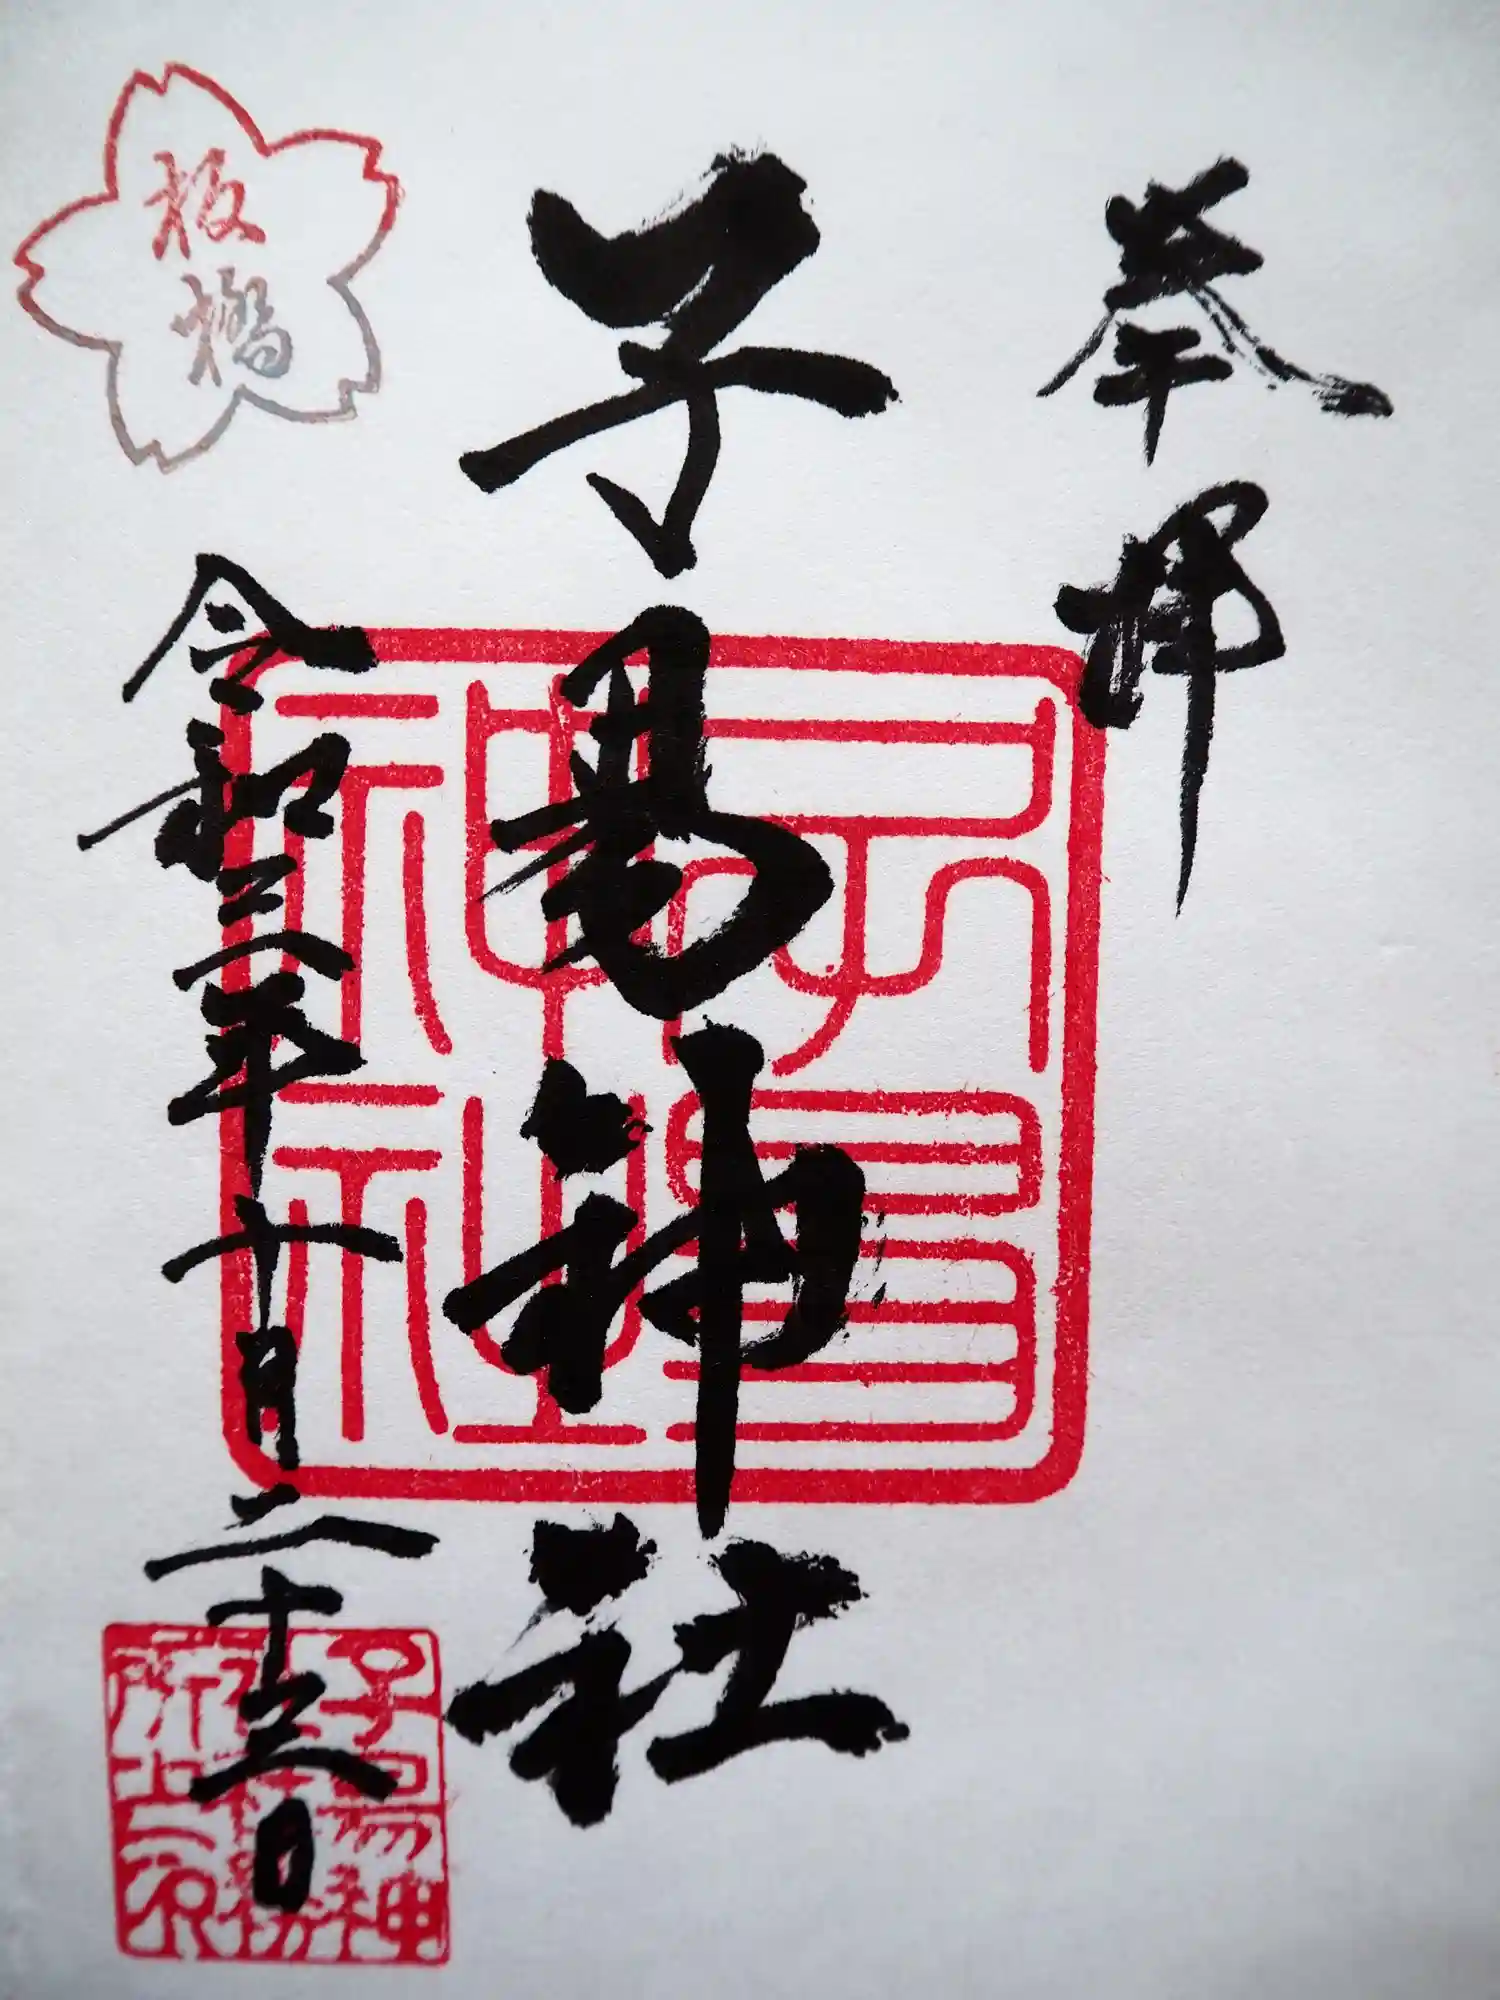 奉拝
子易神社
子易
神社
板橋
令和三年十月二十三日
子易神
社務
所之印